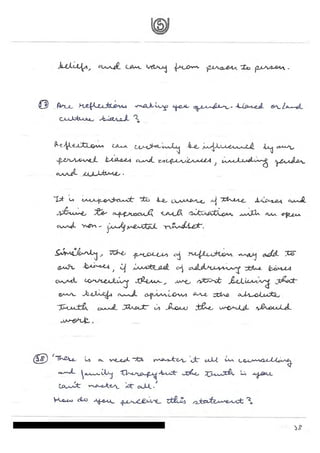 beliefs, and can vary from person to person.
37 Are reflections making you gender-biased or/and
culture biased?
Reflections can certainly be influenced by our
personal biases and experiences, including gender
and culture.
It is important to be aware of these biases and
strive to approach each situation with an open
and non-judgmental mindset.
Similarly, the process of reflection may add to
our biases, if instead of addressing the biases
and correcting them, we start believing that
our beliefs and opinions are the absolute
truth and that is how the world should
work.
38 'There is a need to master it all in counselling
and family therapy but the truth is you
can't master it all.'
How do you perceive this statement?
58